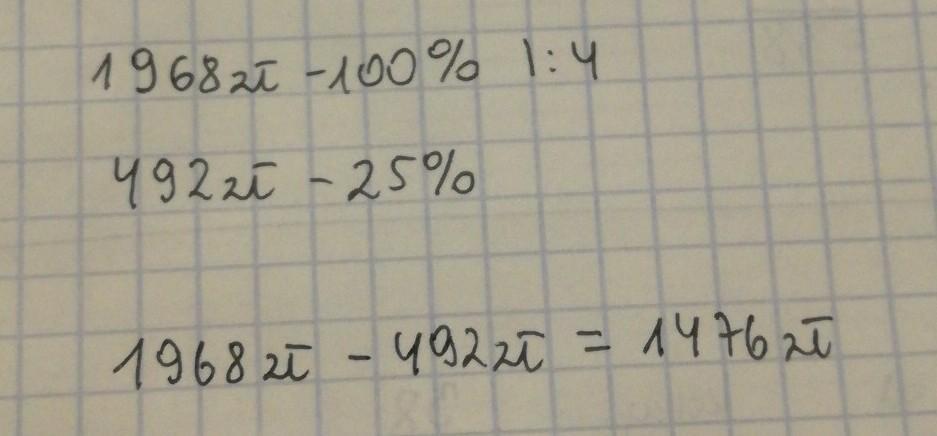 1968 zł - 100% |:4
492 zł - 25%
1968 zł - 492 zł = 1476 zł